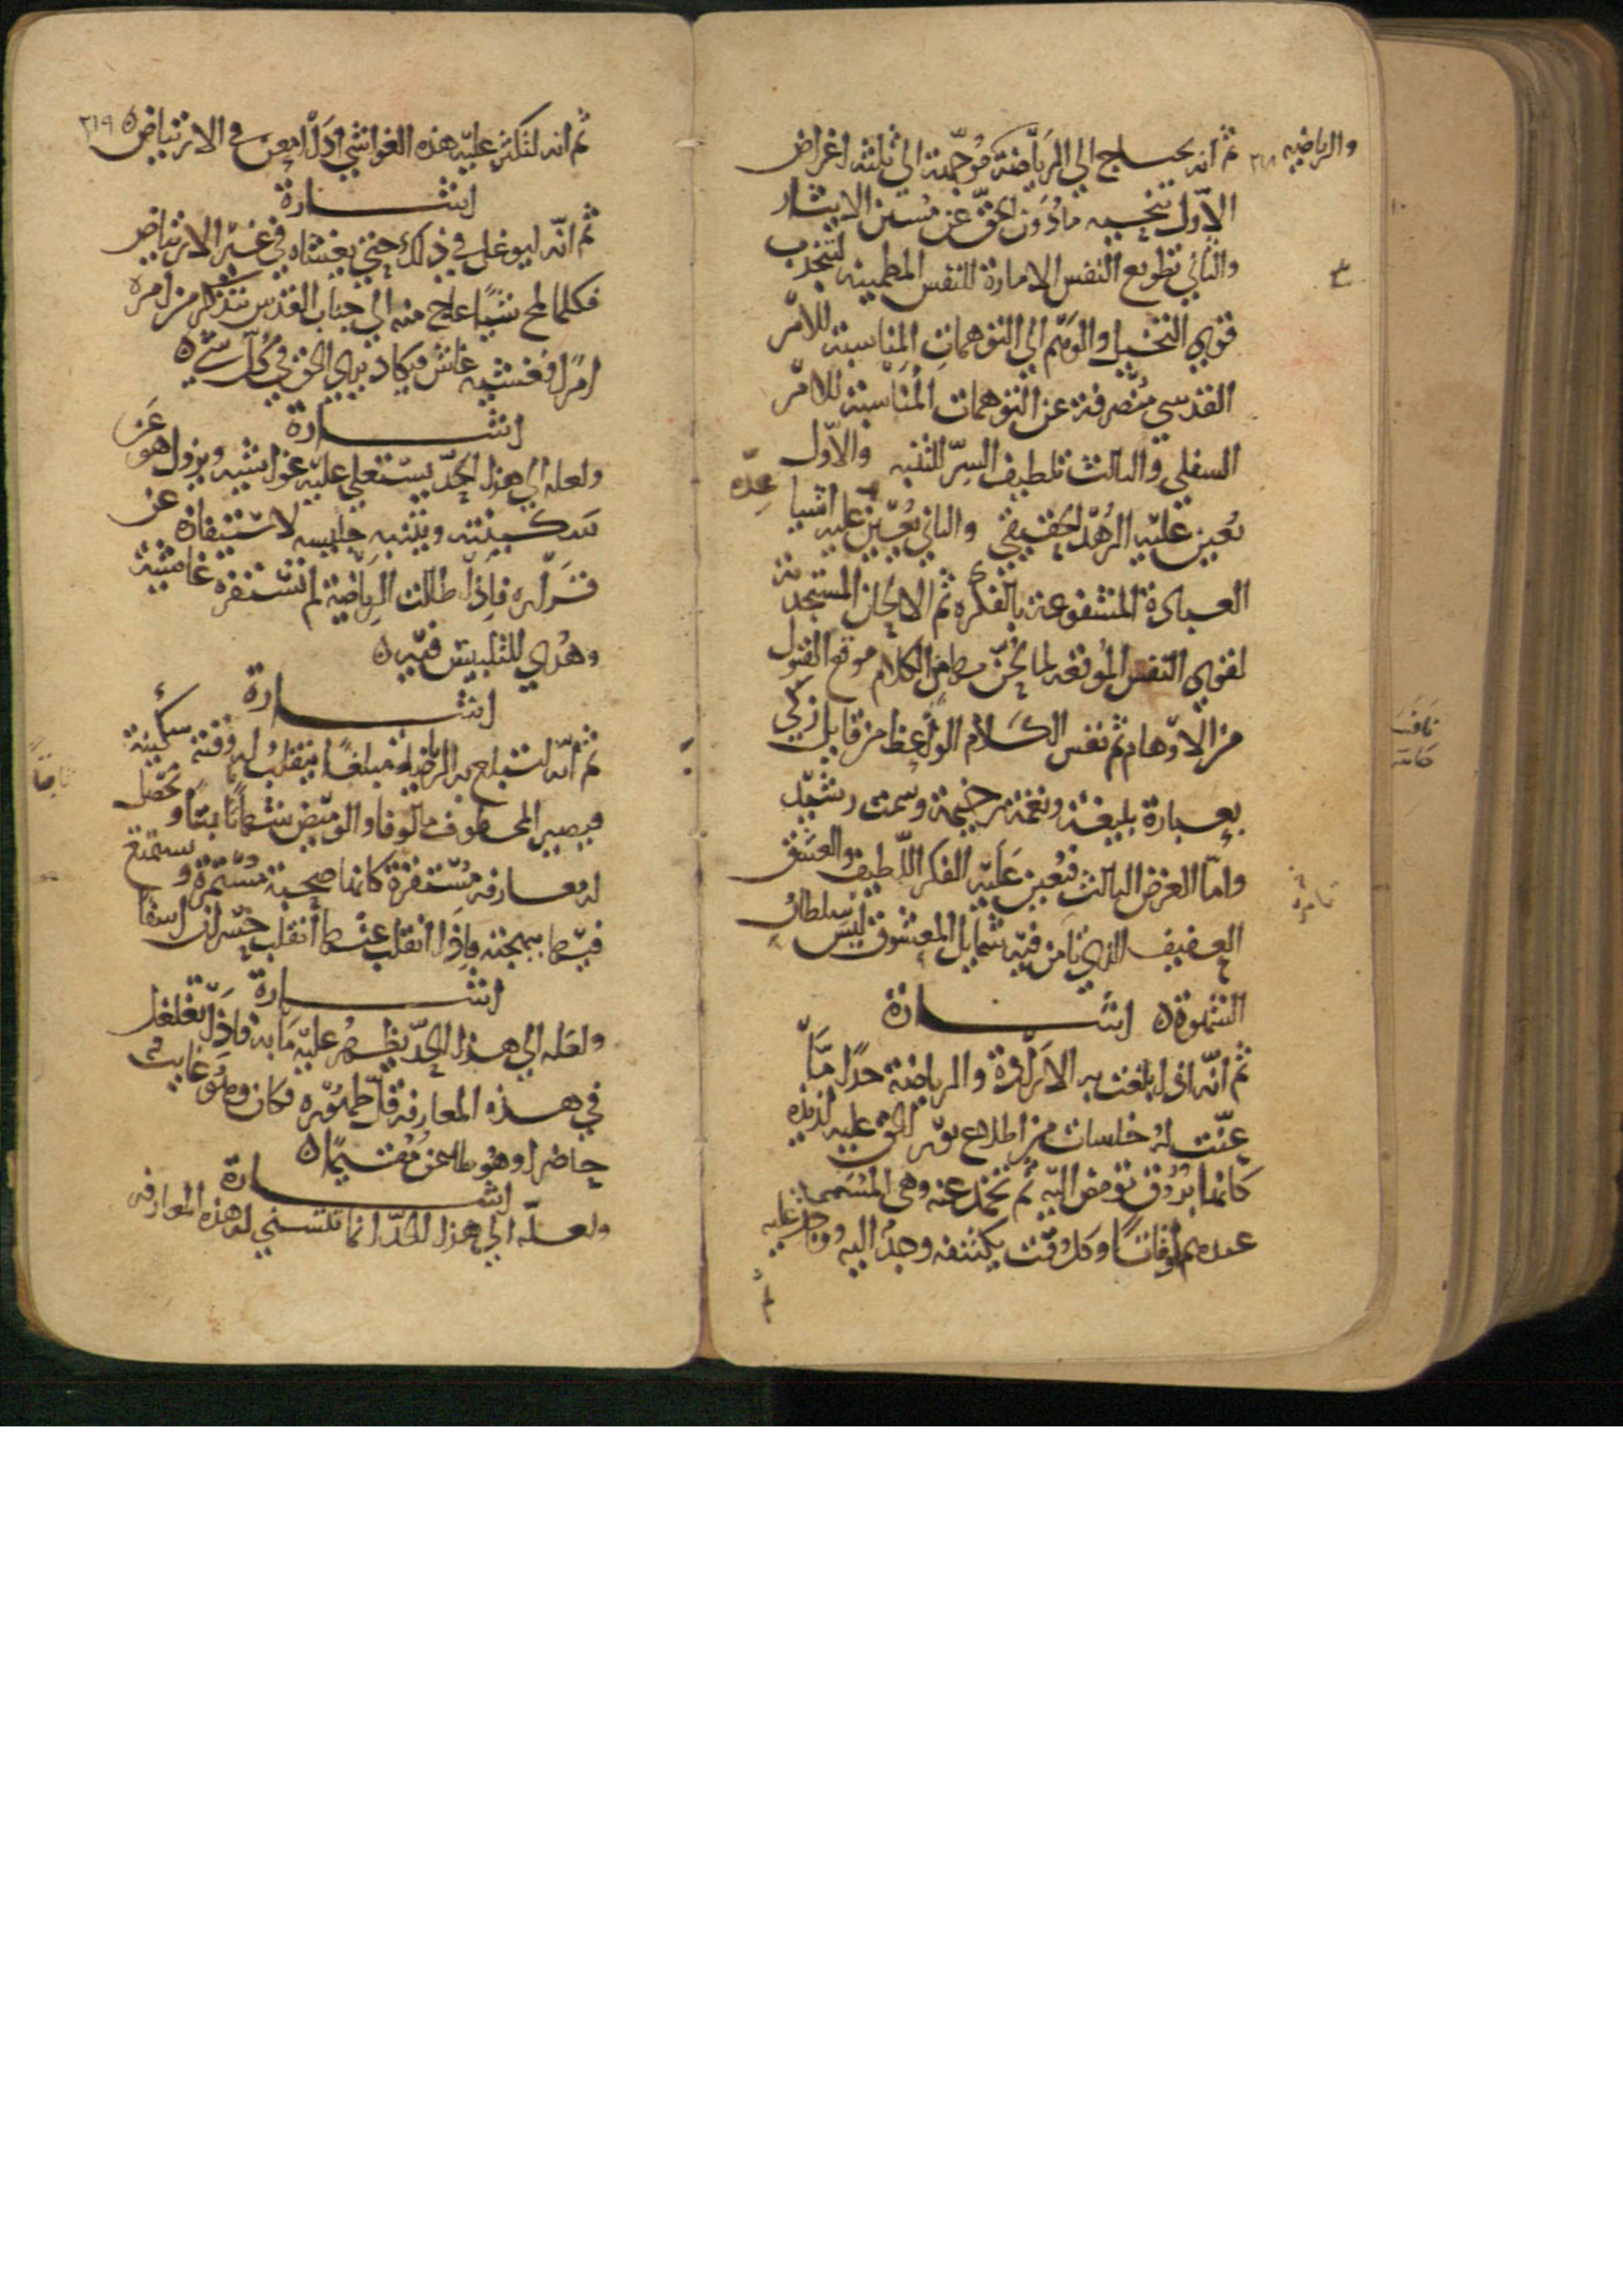 والرياضه
ثم انه يحتاج الي الرياضة موجهة الي ثلثه اغراض
الاول تنحيه ما دون الحق عن مستن الايثار
والثاني تطويع النفس الامارة للنفس المطمينه لتنجذب
قوي التخيل والوهم الي التوهمات المناسبة للامر
القدسي منصرفة عن التوهمات المناسبة للامر
السفلي والثالث تلطيف السر للتنبه والاول
يعين عليه الزهد الحقيقي والثاني يعين عليه اشيا عده
العبادة المشفوعة بالفكره ثم الالحان المستخدمة
لقوي النفس الموقعه لما لحن بها من الكلام موقع القبول
من الاوهام ثم نفس الكلام الواعظ من قايل زكي
بعبارة بليغة ونغمة رخيمة وسمت رشيد
واما الغرض الثالث فيعين عليه الفكر اللطيف والعشق
العفيف الذي تامر فيه شمايل المعشوق ليس سلطان
الشهوة ٥ اشارة
ثم انه اذا بلغت به الارادة والرياضة حدا ما
عنت له خلسات من اطلاع نور الحق عليه لذيذه
كانها بروق تومض اليه ثم تخمد عنه وهي المسمي
عندهم اوقاتا وكل وقت يكتنفه وجد اليه ووجد عليه
٣١٩
ثم انه لتكثر عليه هذه الغواشي اذا امعن في الارتياض ٥
اشارة
ثم انه ليوغل في ذلك حتي يغشاه في غير الارتياض
فكلما لمح شيا عاج منه الي جناب القدس يتذكر من امره
امرا فغشيه غاش فيكاد يري الحق في كل شي ٥
اشارة
ولعله الي هذا الحد يستعلي عليه غواشيه ويزول هو عن
سكينته ويتنبه جليسه لاستيفازه عن
قراره فاذا طالت الرياضة لم تستفزه غاشية
وهدي للتلبيس فيه ٥
اشارة
ثم انه لتبلغ به الرياضة مبلغا ينقلب له وقته سكينة
فيصير المخطوف مالوفا والوميض شهابا بينا وتحصل
له معارفه مستقرة كانها صحبة مستمرة ويستمتع
فيها ببهجته فاذا انقلب عنها انقلب خسران اسفا
اشارة
ولعله الي هذا الحد يظهر عليه ما به فاذا تغلغل
في هذه المعارفة قل ظهوره فكان وهو غايب
حاضرا وهو ظاعن مقيما ٥
اشارة
ولعله الي هذا الحد انما تتسني له هذه المعارفه